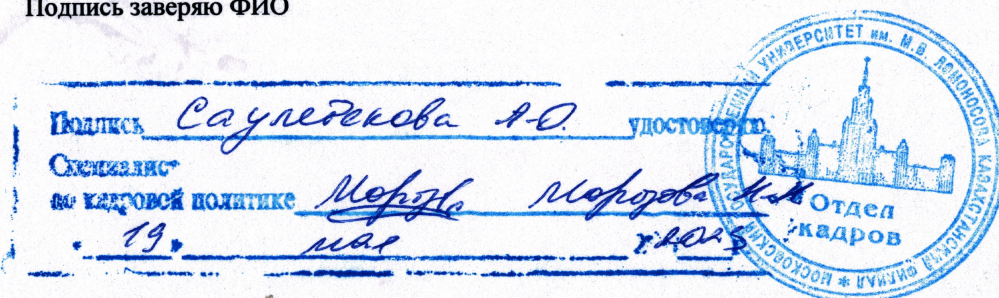 Подпись заверяю ФИО
Подпись Саулебекова А.О. удостоверяю.
Специалист
по кадровой политике Морозова М.М
"19" мая
МОСКОВСКИЙ ГОСУДАРСТВЕННЫЙ УНИВЕРСИТЕТ им. М.В. ЛОМОНОСОВА КАЗАХСТАНСКИЙ ФИЛИАЛ *
Отдел
кадров